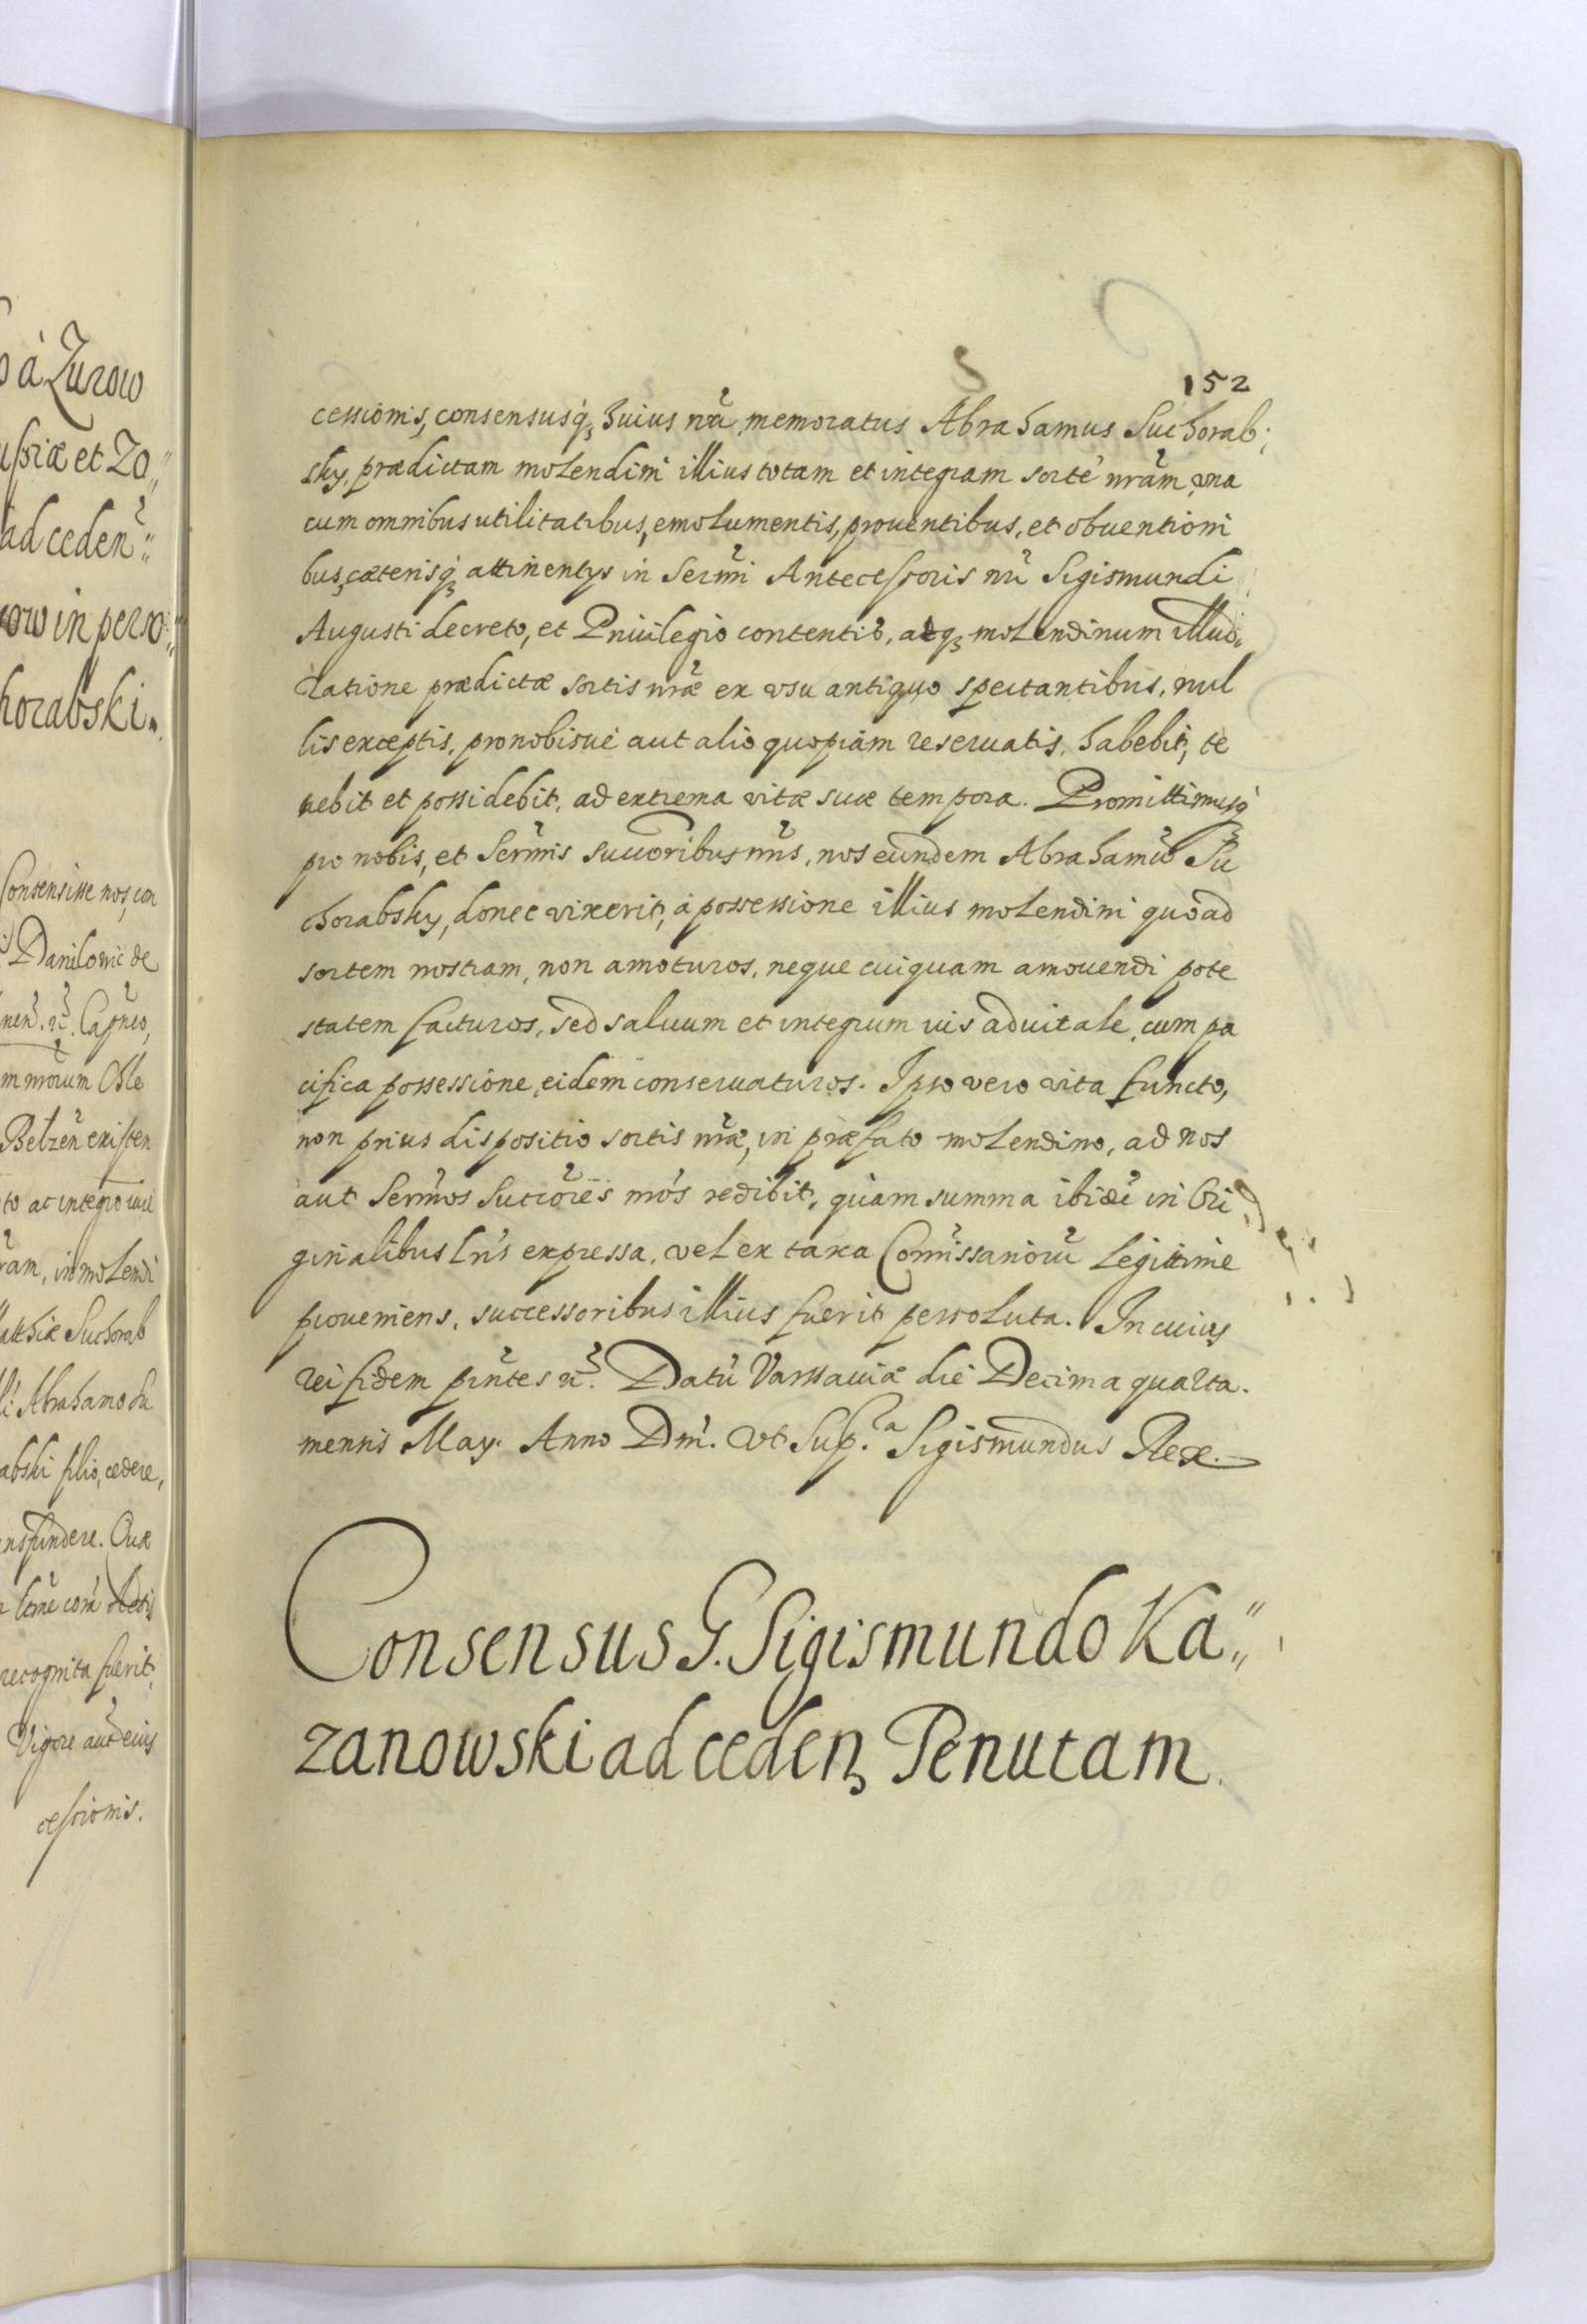 à Zurow
usiæ et Zo„
ad ceden̄„
ow in perso„
horabski.
Consensisse nos, con
Danilowic de
Capneo,
Belzen̄ existen
to ac integro iure
ram, in molendi
atthiæ Suchorab
Abrahamo Su
abski filio, cedere,
nsfundere. Quæ
recognita fuerit,
Vigore aut̄ eius
cessionis.
152
cessionis, consensusq; huius nr̄i memoratus Abrahamus Suchorab:
sky, prædictam molendini illius totam et integram sortē nr̄am, vna
cum omnibus utilitatibus, emolumentis, prouentibus, et obuentioni
bus, cæterisq; attinentys in Serm̄i Antecessoris nr̄i Sigismundi
Augusti decreto, et Priuilegio contentis, adq; molendinum illud
ratione prædictæ sortis nr̄æ ex vsu antiquo spectantibus, nul
lis exceptis, pro nobisue aut alio quopiam reseruatis, habebit, te
nebit et possidebit, ad extrema vitæ suæ tempora. Promittimusq;
pro nobis, et Serm̄is Succoribus nr̄is, nos eundem Abrahamū Su
chorabsky, donec vixerit, à possessione illius molendini quoad
sortem nostram, non amoturos, neque cuiquam amouendi pote
statem facturos, sed saluum et integrum ius aduitale, cum pa
cifica possessione, eidem conseruaturos. Ipso vero vita functo,
non prius dispositio sortis nr̄æ, in præfato molendino, ad nos
aut Serm̄os Succōres nr̄os redibit, quam summa ibidē in Ori
ginalibus lr̄is expressa, vel ex taxa Com̄issariorū legitime
proueniens, successoribus illius fuerit persoluta. In cuius
rei fidem pn̄tes etc̄. Datū Varssauiæ die Decima quarta.
mensis May. Anno Dni. Vt Sup.ª Sigismundus Rex.
Consensus G. Sigismundo Ka„
zanowski ad ceden; Penutam.